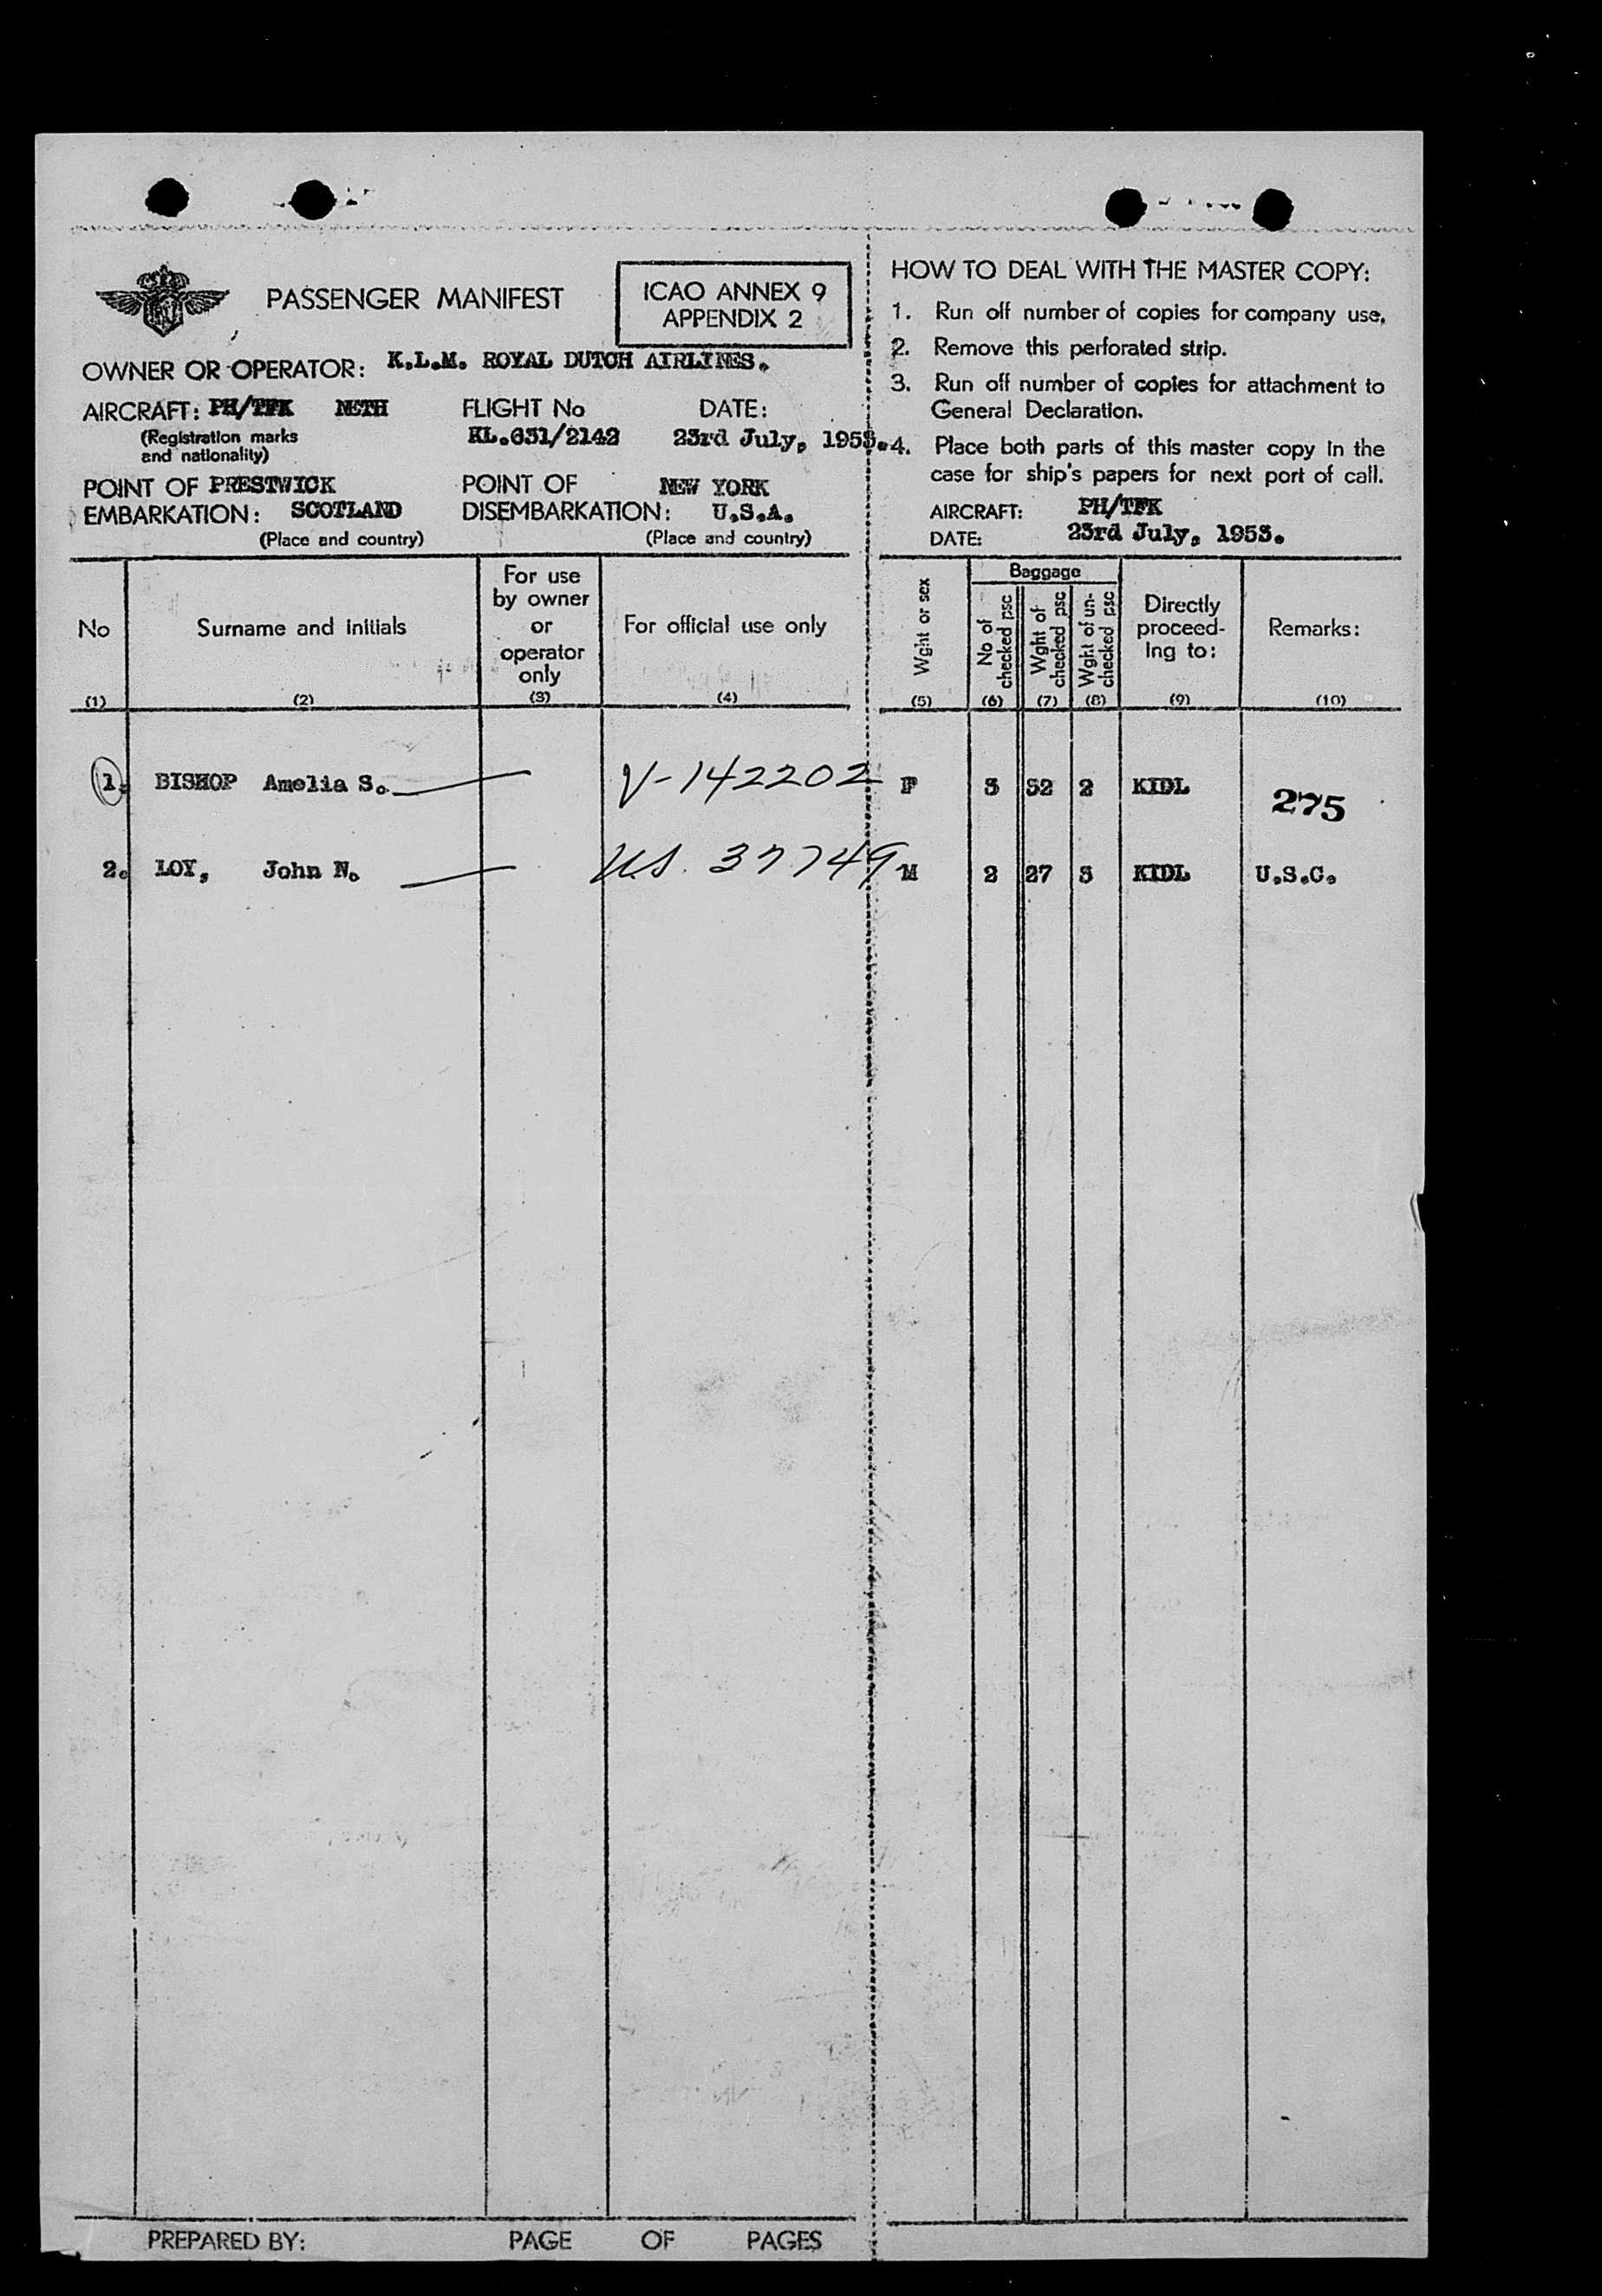 PASSENGER MANIFEST
ICAO ANNEX 9
APPENDIX 2
OWNER OR OPERATOR: K.L.M. ROYAL DUTCH AIRLINES.
AIRCRAFT: PH/TFK NETH FLIGHT No DATE:
(Registration marks and nationality) KL.631/2142 23rd July, 1953.
POINT OF PRESTWICK POINT OF NEW YORK
EMBARKATION: SCOTLAND DISEMBARKATION: U.S.A.
(Place and country) (Place and country)
HOW TO DEAL WITH THE MASTER COPY:
1. Run off number of copies for company use.
2. Remove this perforated strip.
3. Run off number of copies for attachment to
General Declaration.
4. Place both parts of this master copy in the
case for ship's papers for next port of call.
AIRCRAFT: PH/TFK
DATE: 23rd July, 1953.
No
(1)
Surname and initials
(2)
For use
by owner
or
operator
only
(3)
For official use only
(4)
Wght or sex
(5)
Baggage
No of
checked psc
(6)
Wght of
checked psc
(7)
Wght of un-
checked psc
(8)
Directly
proceed-
ing to:
(9)
Remarks:
(10)
1. BISHOP Amelia S. V-142202 F 3 32 2 KIDL 275
2. LOY, John N. U.S. 37749 M 2 27 3 KIDL U.S.C.
PREPARED BY: PAGE OF PAGES